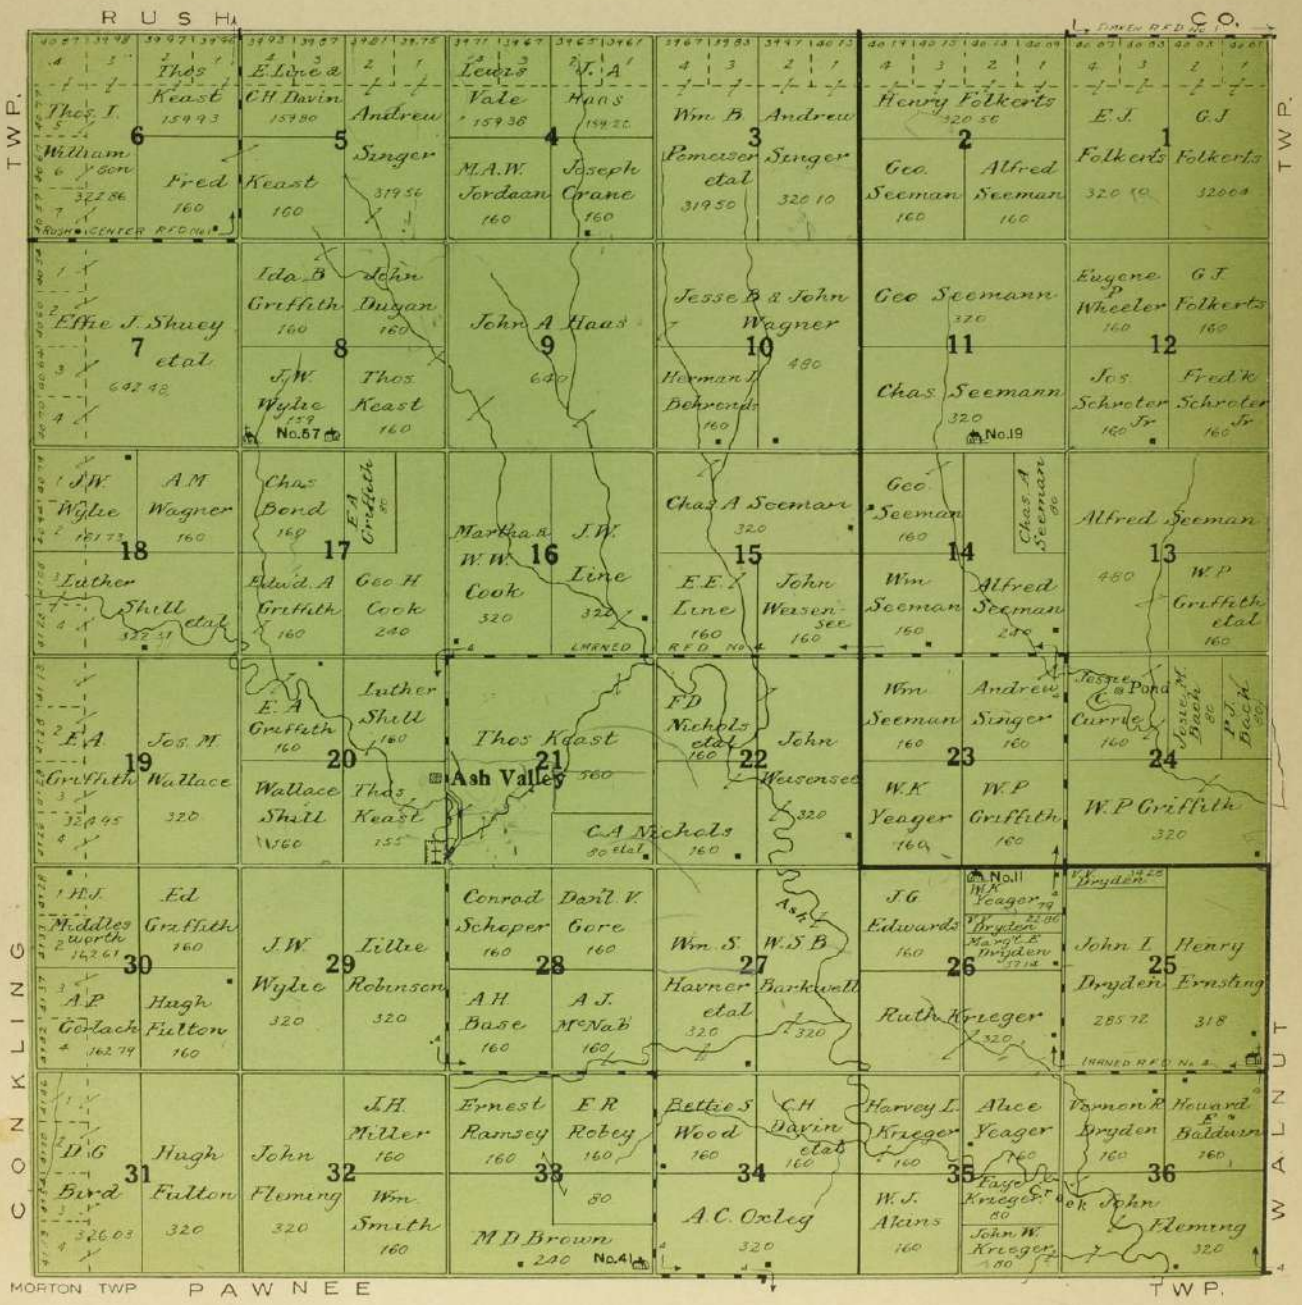 RUSH CO.
TWP.
TWP.
CONKLING
WALNUT
4 3
Thos
Keast
159 93
Thos. I.
5
6
William
6 son
322 86
7
Fred
160
RUSH CENTER RFD No 1
4 3 2 1
E Line &
C H Davin
159 80
5
Andrew
Singer
319 56
Keast
160
Lewis
Vale
159 38
J. A
Haas
4
M.A.W.
Jordaan
160
Joseph
Crane
160
4 3 2 1
Wm B.
3
Pomeiser
etal
319 50
Andrew
Singer
320 10
4 3 2 1
Henry Folkerts
320 56
2
Geo.
Seeman
160
Alfred
Seeman
160
4 3 2 1
E.J.
Folkerts
1
G J
Folkerts
1
2
Effie J. Shuey
7
etal
3
642 48
4
Ida B
Griffith
160
John
Dugan
160
8
J.W.
Wylie
159
No.57
Thos.
Keast
160
John A Haas
9
640
Jesse B & John
Wagner
10
480
Herman I
Behrends
160
Geo Seemann
320
11
Chas. Seemann
320
No.19
Eugene
P
Wheeler
160
G J.
Folkerts
160
12
Jos
Schroter
Jr
160
Fred'k
Schroter
Jr
160
1 J.W.
Wylie
2 161 73
A.M
Wagner
160
18
3 Luther
Shill
etal
4
Chas
Bond
160
E A
Griffith
80
17
Edw'd. A
Griffith
160
Geo. H
Cook
240
Martha &
W.W.
Cook
320
16
J.W.
Line
320
LARNED R F D No 4
Chas A Seeman
320
15
E.E.
Line
160
John
Weisen-
see
160
Geo.
Seeman
160
Chas. A
Seeman
80
14
Wm
Seeman
160
Alfred
Seeman
240
Alfred Seeman
13
480
W.P
Griffith
etal
160
E.A.
Griffith
19
3
4
Jos. M.
Wallace
320
E. A
Griffith
160
Luther
Shill
160
20
Wallace
Shill
160
Thos
Keast
155
Thos Keast
21
560
Ash Valley
C A Nichols
80 etal 160
F D
Nichols
etal
160
22
John
Weisensee
320
Wm
Seeman
160
Andrew
Singer
160
23
W.K
Yeager
160
W.P
Griffith
160
Jessie
C.
Currie
160
Pond
Josie M.
Bach
80
P.J.
Bach
80
24
W.P Griffith
320
1 H.J.
Middles
2 worth
162 61
Ed
Griffith
160
30
3
A.P
Gerlach
4 162 79
Hugh
Fulton
160
J.W.
29
Wylie
320
Lillie
Robinson
320
Conrad
Schoper
160
Dan'l. V.
Gore
160
28
A.H.
Base
160
A J.
McNab
160
Wm. S.
Havner
etal
320
27
W.S B
Barkwell
320
Ash
J.G
Edwards
160
No.11
W.K
Yeager
79
V.V.
Dryden
22 86
Marg't E
Dryden
57 14
26
Ruth Krieger
320
V.V.
Dryden
John I.
Dryden
285 72
25
Henry
Ernsting
318
LARNED R F D No 2
1
2
D.G
Bird
3
326 03
4
31
Hugh
Fulton
320
John
Fleming
320
32
J.H.
Miller
160
Wm.
Smith
160
Ernest
Ramsey
160
E R
Robey
160
33
80
M D Brown
240
No.41
Bettie S
Wood
160
C.H
Davin
etal
160
34
A.C. Oxley
320
Harvey L.
Krieger
160
Alice
Yeager
160
35
W. J.
Akins
160
Faye
Krieger
80
Creek
John W.
Krieger
80
Vernon R
Dryden
160
Howard
E
Baldwin
160
36
John
Fleming
320
MORTON TWP PAWNEE TWP.